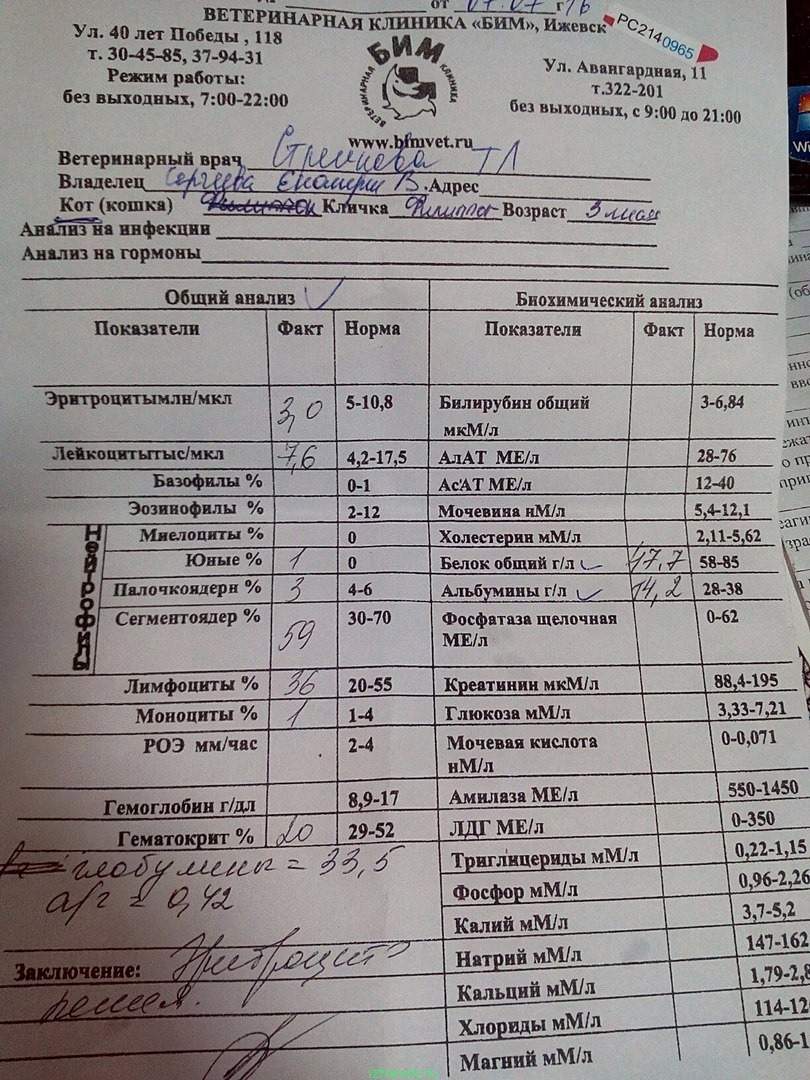 от 07.07 г 16
ВЕТЕРИНАРНАЯ КЛИНИКА «БИМ», Ижевск
PC2140965
Ул. 40 лет Победы , 118
т. 30-45-85, 37-94-31
Режим работы:
без выходных, 7:00-22:00
БИМ
ВЕТЕРИНАРНАЯ КЛИНИКА
Ул. Авангардная, 11
т.322-201
без выходных, с 9:00 до 21:00
www.bimvet.ru
Ветеринарный врач ТЛ
Владелец Сергеева В. Адрес
Кот (кошка) Кличка Филиппок Возраст 3 мес
Анализ на инфекции
Анализ на гормоны
Общий анализ Биохимический анализ
Показатели Факт Норма Показатели Факт Норма
Эритроцитымлн/мкл 3,0 5-10,8 Билирубин общий мкМ/л 3-6,84
Лейкоцитытыс/мкл 7,6 4,2-17,5 АлАТ МЕ/л 28-76
Базофилы % 0-1 АсАТ МЕ/л 12-40
Эозинофилы % 2-12 Мочевина нМ/л 5,4-12,1
Нейтрофилы
Миелоциты % 0 Холестерин мМ/л 2,11-5,62
Юные % 1 0 Белок общий г/л 47,7 58-85
Палочкоядерн % 3 4-6 Альбумины г/л 14,2 28-38
Сегментоядер % 59 30-70 Фосфатаза щелочная МЕ/л 0-62
Лимфоциты % 36 20-55 Креатинин мкМ/л 88,4-195
Моноциты % 1 1-4 Глюкоза мМ/л 3,33-7,21
РОЭ мм/час 2-4 Мочевая кислота нМ/л 0-0,071
Гемоглобин г/дл 8,9-17 Амилаза МЕ/л 550-1450
Гематокрит % 20 29-52 ЛДГ МЕ/л 0-350
глобулины = 33,5 Триглицериды мМ/л 0,22-1,15
а/г = 0,42 Фосфор мМ/л 0,96-2,26
Калий мМ/л 3,7-5,2
Заключение: Эритроцито Натрий мМ/л 147-162
пения. Кальций мМ/л 1,79-2,8
Хлориды мМ/л 114-12
Магний мМ/л 0,86-1